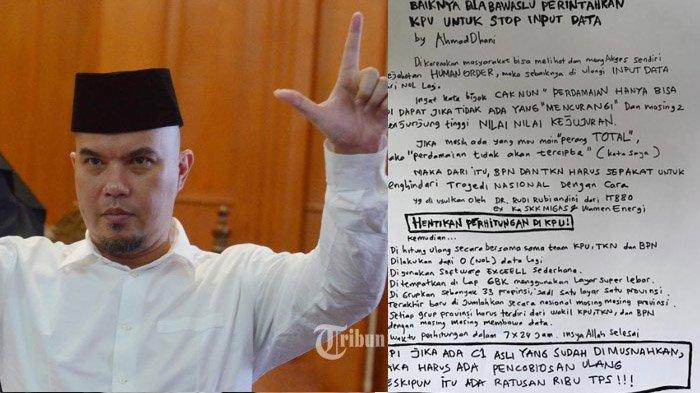 BAIKNYA BILA BAWASLU PERINTAHKAN
KPU UNTUK STOP INPUT DATA
by AhmadDhani
Dikarenakan masyarakat bisa melihat dan mengAkses sendiri
HUMAN ORDER, maka sebaiknya di ulangi INPUT DATA
ari NOL Lagi.
Ingat kata bijak CAKNUN " PERDAMAIAN HANYA BISA
DI DAPAT JIKA TIDAK ADA YANG "MENCURANGI" Dan masing2
enjunjung tinggi NILAI NILAI KEJUJURAN.
JIKA masih ada yang mau main "perang TOTAL",
aka "perdamaian tidak akan tercipta" (kata saya)
MAKA DARI ITU, BPN DAN TKN HARUS SEPAKAT UNTUK
enghindari Tragedi NASIONAL Dengan Cara
yg di usulkan oleh DR. RUDI Rubiandini dari ITB80
ex Ka SKK MIGAS & Wamen Energi
HENTIKAN PERHITUNGAN DI KPU!
kemudian...
Di hitung ulang secara bersama sama team KPU, TKN dan BPN
Dilakukan dari 0 (NOL) data lagi
Di gunakan Software EXCELL Sederhana.
Ditempatkan di Lap GBK menggunakan Layar super lebar.
Di Grupkan sebanyak 33 propinsi, jadi satu layar satu provinsi.
Terakhir baru di jumlahkan secara nasional masing masing provinsi.
Setiap grup provinsi harus terdiri dari wakil KPU, TKN, dan BPN
dengan masing masing membawa data.
Waktu perhitungan dalam 7x24 jam. insya Allah selesai
PI JIKA ADA C1 ASLI YANG SUDAH DIMUSNAHKAN,
AKA HARUS ADA PENCOBLOSAN ULANG
ESKIPUN ITU ADA RATUSAN RIBU TPS!!!
Tribun